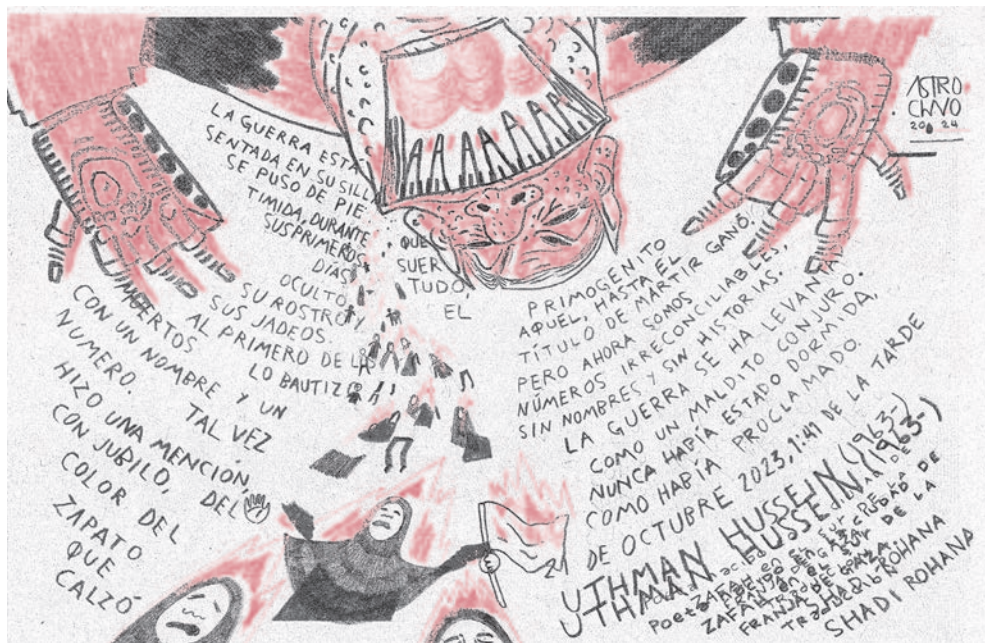 LA GUERRA ESTÁ
SENTADA EN SU SILL
SE PUSO DE PIE.
TIMIDA, DURANTE
SUSPRIMEROS
DÍAS
OCULTÓ
SU ROSTRO Y
SUS JADEOS.
AL PRIMERO DE LOS
MUERTOS LO BAUTIZÓ
CON UN NOMBRE Y UN
NUMERO. TAL VEZ
HIZO UNA MENCIÓN,
CON JUBILO, DEL
COLOR DEL
ZAPATO
QUE
CALZÓ
QUE
SUER
TUDO,
EL
PRIMOGÉNITO
AQUEL, HASTA EL
TÍTULO DE MARTIR GANÓ.
PERO AHORA SOMOS
NÚMEROS IRRECONCILIABLES,
SIN NOMBRES Y SIN HISTORIAS.
LA GUERRA SE HA LEVANTA
COMO UN MALDITO CONJURO.
NUNCA HABÍA ESTADO DORMIDA,
COMO HABÍA PROCLAMADO.
DE OCTUBRE 2023, 1:41 DE LA TARDE
UTHMAN HUSSEIN (1963-)
UTHMAN HUSSEIN (1963-)
FRANJA DE GAZA
SHADI ROHANA
ASTRO
CHVO
2024